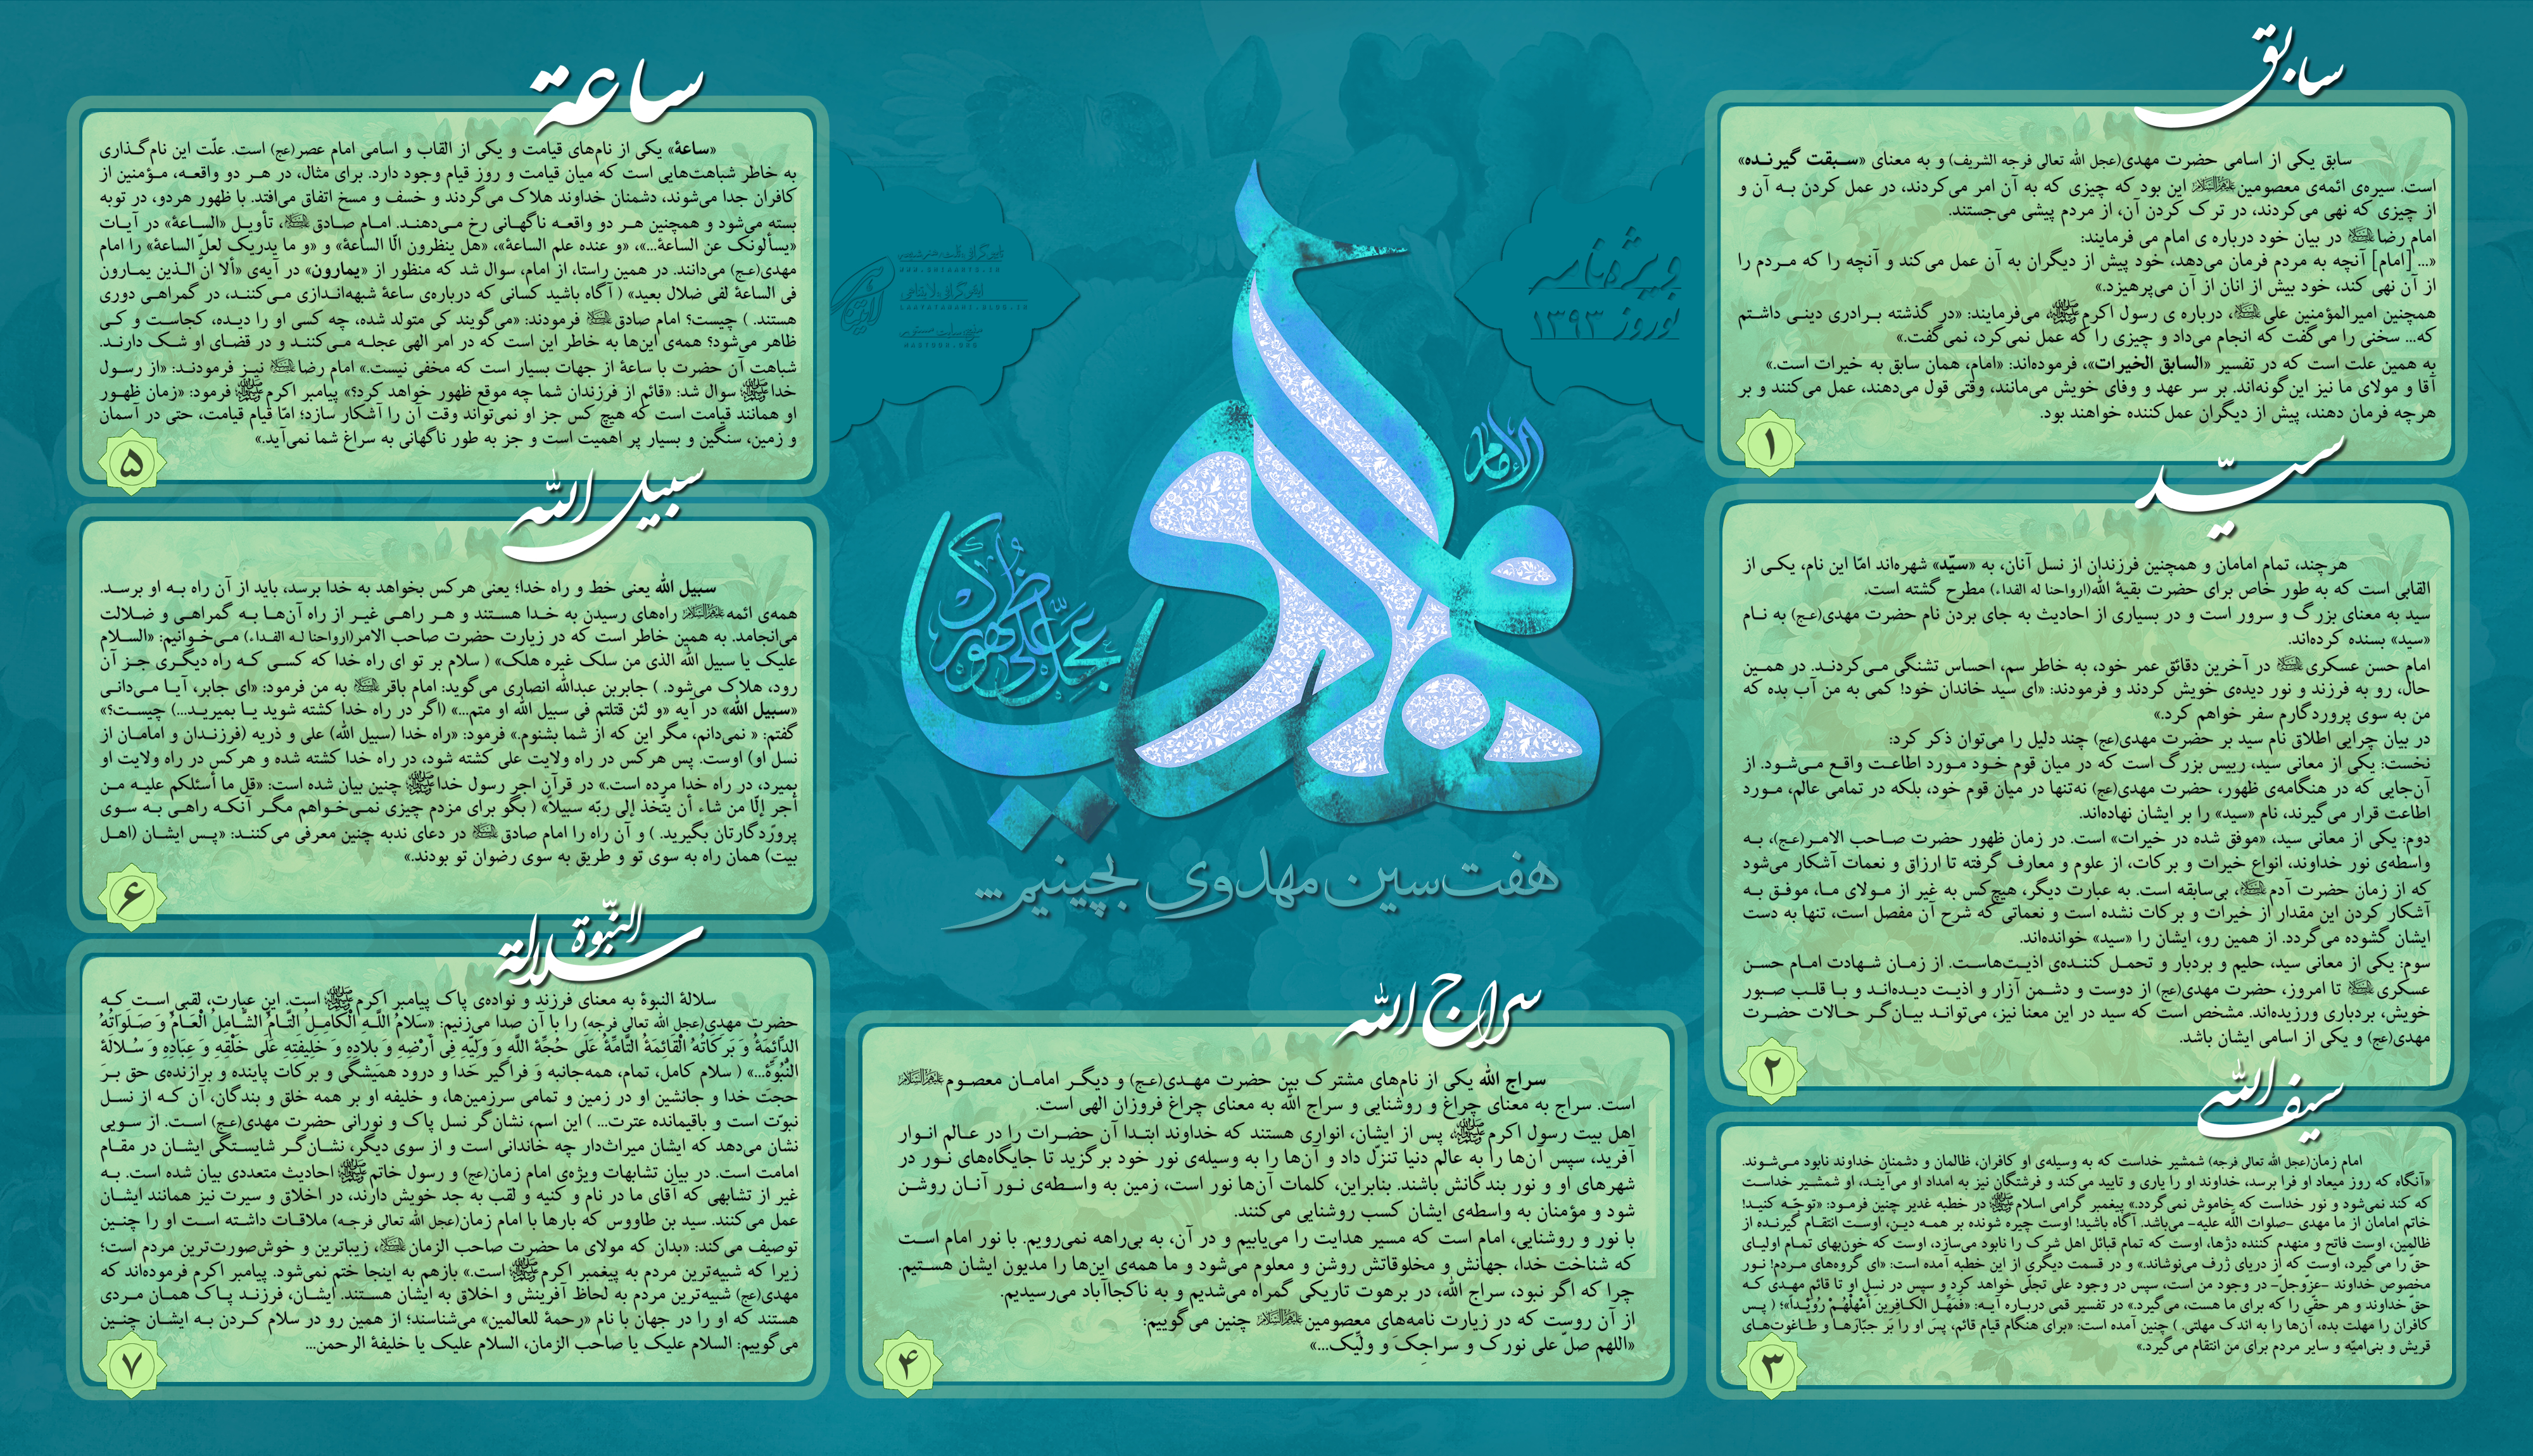 سابق
سابق یکی از اسامی حضرت مهدی(عجل الله تعالی فرجه الشریف) و به معنای «سبقت گیرنده»
است. سیره‌ی ائمه‌ی معصومین علیهم‌السلام این بود که چیزی که به آن امر می‌کردند، در عمل کردن به آن و
از چیزی که نهی می‌کردند، در ترک کردن آن، از مردم پیشی می‌جستند.
امام رضا علیه‌السلام در بیان خود درباره ی امام می فرمایند:
«... [امام] آنچه به مردم فرمان می‌دهد، خود پیش از دیگران به آن عمل می‌کند و آنچه را که مردم را
از آن نهی کند، خود بیش از انان از آن می‌پرهیزد.»
همچنین امیرالمؤمنین علی علیه‌السلام، درباره ی رسول اکرم ﷺ، می‌فرمایند: «در گذشته برادری دینی داشتم
که... سخنی را می‌گفت که انجام می‌داد و چیزی را که عمل نمی‌کرد، نمی‌گفت.»
به همین علت است که در تفسیر «السابق الخیرات»، فرموده‌اند: «امام، همان سابق به خیرات است.»
آقا و مولای ما نیز این‌گونه‌اند. بر سر عهد و وفای خویش می‌مانند، وقتی قول می‌دهند، عمل می‌کنند و بر
هرچه فرمان دهند، پیش از دیگران عمل‌کننده خواهند بود.
۱
سیّد
هرچند، تمام امامان و همچنین فرزندان از نسل آنان، به «سیّد» شهره‌اند امّا این نام، یکی از
القابی است که به طور خاص برای حضرت بقیة الله(ارواحنا له الفداء) مطرح گشته است.
سید به معنای بزرگ و سرور است و در بسیاری از احادیث به جای بردن نام حضرت مهدی(عج) به نام
«سید» بسنده کرده‌اند.
امام حسن عسکری علیه‌السلام در آخرین دقائق عمر خود، به خاطر سم، احساس تشنگی می‌کردند. در همین
حال، رو به فرزند و نور دیده‌ی خویش کردند و فرمودند: «ای سید خاندان خود! کمی به من آب بده که
من به سوی پروردگارم سفر خواهم کرد.»
در بیان چرایی اطلاق نام سید بر حضرت مهدی(عج) چند دلیل را می‌توان ذکر کرد:
نخست: یکی از معانی سید، رییس بزرگ است که در میان قوم خود مورد اطاعت واقع می‌شود. از
آن‌جایی که در هنگامه‌ی ظهور، حضرت مهدی(عج) نه‌تنها در میان قوم خود، بلکه در تمامی عالم، مورد
اطاعت قرار می‌گیرند، نام «سید» را بر ایشان نهاده‌اند.
دوم: یکی از معانی سید، «موفق شده در خیرات» است. در زمان ظهور حضرت صاحب الامر(عج)، به
واسطه‌ی نور خداوند، انواع خیرات و برکات، از علوم و معارف گرفته تا ارزاق و نعمات آشکار می‌شود
که از زمان حضرت آدم علیه‌السلام، بی‌سابقه است. به عبارت دیگر، هیچ‌کس به غیر از مولای ما، موفق به
آشکار کردن این مقدار از خیرات و برکات نشده است و نعماتی که شرح آن مفصل است، تنها به دست
ایشان گشوده می‌گردد. از همین رو، ایشان را «سید» خوانده‌اند.
سوم: یکی از معانی سید، حلیم و بردبار و تحمل کننده‌ی اذیت‌هاست. از زمان شهادت امام حسن
عسکری علیه‌السلام تا امروز، حضرت مهدی(عج) از دوست و دشمن آزار و اذیت دیده‌اند و با قلب صبور
خویش، بردباری ورزیده‌اند. مشخص است که سید در این معنا نیز، می‌تواند بیان‌گر حالات حضرت
مهدی(عج) و یکی از اسامی ایشان باشد.
۲
سیف الله
امام زمان(عجل الله تعالی فرجه) شمشیر خداست که به وسیله‌ی او کافران، ظالمان و دشمنان خداوند نابود می‌شوند.
«آنگاه که روز میعاد او فرا برسد، خداوند او را یاری و تایید می‌کند و فرشتگان نیز به امداد او می‌آیند، او شمشیر خداست
که کند نمی‌شود و نور خداست که خاموش نمی‌گردد.» پیغمبر گرامی اسلام ﷺ در خطبه غدیر چنین فرمود: «توجّه کنید!
خاتم امامان از ما مهدی -صلوات اللّه علیه- می‌باشد. آگاه باشید! اوست چیره شونده بر همه دین، اوست انتقام گیرنده از
ظالمین، اوست فاتح و منهدم کننده دژها، اوست که تمام قبائل اهل شرک را نابود می‌سازد، اوست که خون‌بهای تمام اولیای
حقّ را می‌گیرد، اوست که از دریای ژرف می‌نوشاند.» و در قسمت دیگری از این خطبه آمده است: «ای گروه‌های مردم! نور
مخصوص خداوند -عزّوجل- در وجود من است، سپس در وجود علی تجلّی خواهد کرد و سپس در نسل او تا قائم مهدی که
حقّ خداوند و هر حقّی را که برای ما هست، می‌گیرد.» در تفسیر قمی درباره آیه: «فَمَهِّلِ الکافِرینَ أمْهِلْهُمْ رُوَیْداً»؛ ( پس
کافران را مهلت بده، آن‌ها را به اندک مهلتی. ) چنین آمده است: «برای هنگام قیام قائم، پس او را بَر جبّارها و طاغوت‌های
قریش و بنی‌امیّه و سایر مردم برای من انتقام می‌گیرد.»
۳
ویژه‌نامه
نوروز ۱۳۹۳
الامام
المهدی
عجّل علی ظهورک
هفت‌سین مهدوی بچینیم...
سراج الله
سراج الله یکی از نام‌های مشترک بین حضرت مهدی(عج) و دیگر امامان معصوم علیهم‌السلام
است. سراج به معنای چراغ و روشنایی و سراج الله به معنای چراغ فروزان الهی است.
اهل بیت رسول اکرم ﷺ، پس از ایشان، انواری هستند که خداوند ابتدا آن حضرات را در عالم انوار
آفرید، سپس آن‌ها را به عالم دنیا تنزّل داد و آن‌ها را به وسیله‌ی نور خود برگزید تا جایگاه‌های نور در
شهرهای او و نور بندگانش باشند. بنابراین، کلمات آن‌ها نور است، زمین به واسطه‌ی نور آنان روشن
شود و مؤمنان به واسطه‌ی ایشان کسب روشنایی می‌کنند.
با نور و روشنایی، امام است که مسیر هدایت را می‌یابیم و در آن، به بی‌راهه نمی‌رویم. با نور امام است
که شناخت خدا، جهانش و مخلوقاتش روشن و معلوم می‌شود و ما همه‌ی این‌ها را مدیون ایشان هستیم.
چرا که اگر نبود، سراج الله، در برهوت تاریکی گمراه می‌شدیم و به ناکجاآباد می‌رسیدیم.
از آن روست که در زیارت نامه‌های معصومین علیهم‌السلام چنین می‌گوییم:
«اللهم صلّ علی نورک و سراجِکَ و ولیّک...»
۴
ساعة
«ساعة» یکی از نام‌های قیامت و یکی از القاب و اسامی امام عصر(عج) است. علّت این نام‌گذاری
به خاطر شباهت‌هایی است که میان قیامت و روز قیام وجود دارد. برای مثال، در هر دو واقعه، مؤمنین از
کافران جدا می‌شوند، دشمنان خداوند هلاک می‌گردند و خسف و مسخ اتفاق می‌افتد. با ظهور هردو، در توبه
بسته می‌شود و همچنین هر دو واقعه ناگهانی رخ می‌دهند. امام صادق علیه‌السلام، تأویل «الساعة» در آیات
«یسألونک عن الساعة...»، «و عنده علم الساعة»، «هل ینظرون الّا الساعة» و «و ما یدریک لعلّ الساعة» را امام
مهدی(عج) می‌دانند. در همین راستا، از امام، سوال شد که منظور از «یمارون» در آیه‌ی «ألا انّ الذین یمارون
فی الساعة لفی ضلال بعید» ( آگاه باشید کسانی که درباره‌ی ساعة شبهه‌اندازی می‌کنند، در گمراهی دوری
هستند. ) چیست؟ امام صادق علیه‌السلام فرمودند: «می‌گویند کی متولد شده، چه کسی او را دیده، کجاست و کی
ظاهر می‌شود؟ همه‌ی این‌ها به خاطر این است که در امر الهی عجله می‌کنند و در قضای او شک دارند.
شباهت آن حضرت با ساعة از جهات بسیار است که مخفی نیست.» امام رضا علیه‌السلام نیز فرمودند: «از رسول
خدا ﷺ سوال شد: «قائم از فرزندان شما چه موقع ظهور خواهد کرد؟» پیامبر اکرم ﷺ فرمود: «زمان ظهور
او همانند قیامت است که هیچ کس جز او نمی‌تواند وقت آن را آشکار سازد؛ امّا قیام قیامت، حتی در آسمان
و زمین، سنگین و بسیار پر اهمیت است و جز به طور ناگهانی به سراغ شما نمی‌آید.»
۵
سبیل الله
سبیل الله یعنی خط و راه خدا؛ یعنی هرکس بخواهد به خدا برسد، باید از آن راه به او برسد.
همه‌ی ائمه علیهم‌السلام راه‌های رسیدن به خدا هستند و هر راهی غیر از راه آن‌ها به گمراهی و ضلالت
می‌انجامد. به همین خاطر است که در زیارت حضرت صاحب الامر(ارواحنا له الفداء) می‌خوانیم: «السلام
علیک یا سبیل الله الذی من سلک غیره هلک» ( سلام بر تو ای راه خدا که کسی که راه دیگری جز آن
رود، هلاک می‌شود. ) جابربن عبدالله انصاری می‌گوید: امام باقر علیه‌السلام به من فرمود: «ای جابر، آیا می‌دانی
«سبیل الله» در آیه «و لئن قتلتم فی سبیل الله او متم...» (اگر در راه خدا کشته شوید یا بمیرید...) چیست؟»
گفتم: « نمی‌دانم، مگر این که از شما بشنوم.» فرمود: «راه خدا (سبیل الله) علی و ذریه (فرزندان و امامان از
نسل او) اوست. پس هرکس در راه ولایت علی کشته شود، در راه خدا کشته شده و هرکس در راه ولایت او
بمیرد، در راه خدا مرده است.» در قرآن اجر رسول خدا ﷺ چنین بیان شده است: «قل ما أسئلکم علیه من
أجر إلّا من شاء أن یتّخذ إلی ربّه سبیلاً» ( بگو برای مزدم چیزی نمی‌خواهم مگر آنکه راهی به سوی
پروردگارتان بگیرید. ) و آن راه را امام صادق علیه‌السلام در دعای ندبه چنین معرفی می‌کنند: «پس ایشان (اهل
بیت) همان راه به سوی تو و طریق به سوی رضوان تو بودند.»
۶
سلالة النبّوة
سلالة النبوة به معنای فرزند و نواده‌ی پاک پیامبر اکرم ﷺ است. این عبارت، لقبی است که
حضرت مهدی(عجل الله تعالی فرجه) را با آن صدا می‌زنیم: «سَلَامُ اللَّهِ الْکَامِلُ التَّامُّ الشَّامِلُ الْعَامُّ وَ صَلَوَاتُهُ
الدَّائِمَةُ وَ بَرَکَاتُهُ الْقَائِمَةُ التَّامَّةُ عَلَى حُجَّةِ اللَّهِ وَ وَلِیِّهِ فِی أَرْضِهِ وَ بِلَادِهِ وَ خَلِیفَتِهِ عَلَى خَلْقِهِ وَ عِبَادِهِ وَ سُلَالَةِ
النُّبُوَّةِ...» ( سلام کامل، تمام، همه‌جانبه و فراگیر خدا و درود همیشگی و برکات پاینده و برازنده‌ی حق بر
حجت خدا و جانشین او در زمین و تمامی سرزمین‌ها، و خلیفه او بر همه خلق و بندگان، آن که از نسل
نبوّت است و باقیمانده عترت... ) این اسم، نشان‌گر نسل پاک و نورانی حضرت مهدی(عج) است. از سویی
نشان می‌دهد که ایشان میراث‌دار چه خاندانی است و از سوی دیگر، نشان‌گر شایستگی ایشان در مقام
امامت است. در بیان تشابهات ویژه‌ی امام زمان(عج) و رسول خاتم ﷺ احادیث متعددی بیان شده است. به
غیر از تشابهی که آقای ما در نام و کنیه و لقب به جد خویش دارند، در اخلاق و سیرت نیز همانند ایشان
عمل می‌کنند. سید بن طاووس که بارها با امام زمان(عجل الله تعالی فرجه) ملاقات داشته است او را چنین
توصیف می‌کند: «بدان که مولای ما حضرت صاحب الزمان علیه‌السلام، زیباترین و خوش‌صورت‌ترین مردم است؛
زیرا که شبیه‌ترین مردم به پیغمبر اکرم ﷺ است.» بازهم به اینجا ختم نمی‌شود. پیامبر اکرم فرموده‌اند که
مهدی(عج) شبیه‌ترین مردم به لحاظ آفرینش و اخلاق به ایشان هستند. ایشان، فرزند پاک همان مردی
هستند که او را در جهان با نام «رحمة للعالمین» می‌شناسند؛ از همین رو در سلام کردن به ایشان چنین
می‌گوییم: السلام علیک یا صاحب الزمان، السلام علیک یا خلیفة الرحمن...
۷